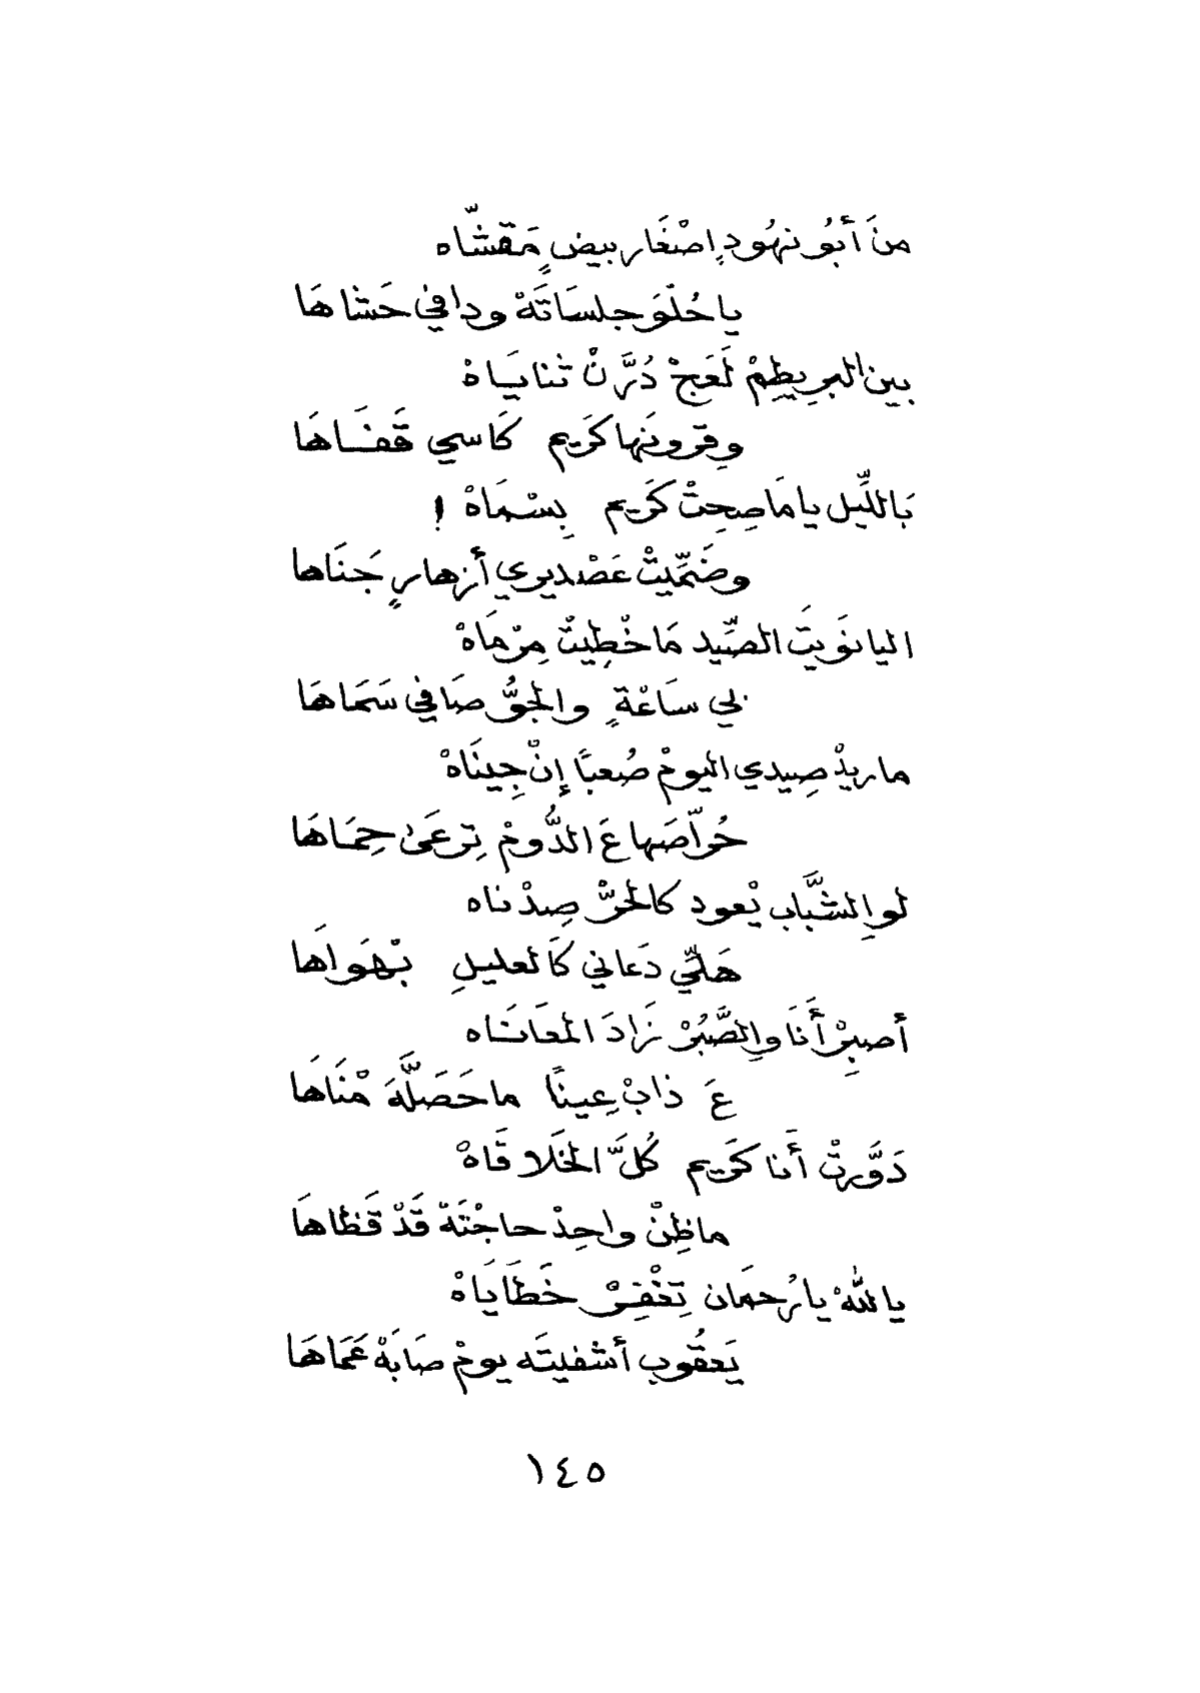 منَ أبُو نهُودٍ اصْغَار بيضٍ مَقشّاه
ياحُلْوَ جلسَاتَهْ ودافي حَشاهَا
بين البرِيطِمْ لَعَجْ دُرَّنْ ثنايَاهْ
وقرونَها كَريم كَاسي قَفَاهَا
بَاللِّيل ياما صِحِتْ كَريم بِسْمَاهْ !
وضَمِّيتْ عَصْديري أزهارٍ جَنَاها
اليا نوَيتَ الصِّيد مَاخْطِيتْ مِرْمَاهْ
لي سَاعْةٍ والجوُّ صَافي سَمَاهَا
ماريدْ صِيدي اليومْ صُعبًا إنْ جِينَاهْ
حُرّاصَها عَ الدُّومْ تِرعَى حِمَاهَا
لو الشَّبَاب يْعود كالحرّ صِدْناه
هَلِّي دَعاني كَالعليلِ بْهَوَاهَا
أصبِرْ أَنَا والصَّبُرْ زَادَ المعَانَاه
عَ ذابْ عِينًا ماحَصَلَّهَ مْنَاهَا
دَوَّرتْ أَنا كَريم كُلَّ الخَلا قَاهْ
ماظِنْ واحِدْ حاجْتَهْ قَدْ قَظاهَا
يالله يارْحمَان تِغْفِرْ خَطَايَاهْ
يَعقُوب أشفيتَه يومْ صَابَهْ عَمَاهَا
١٤٥